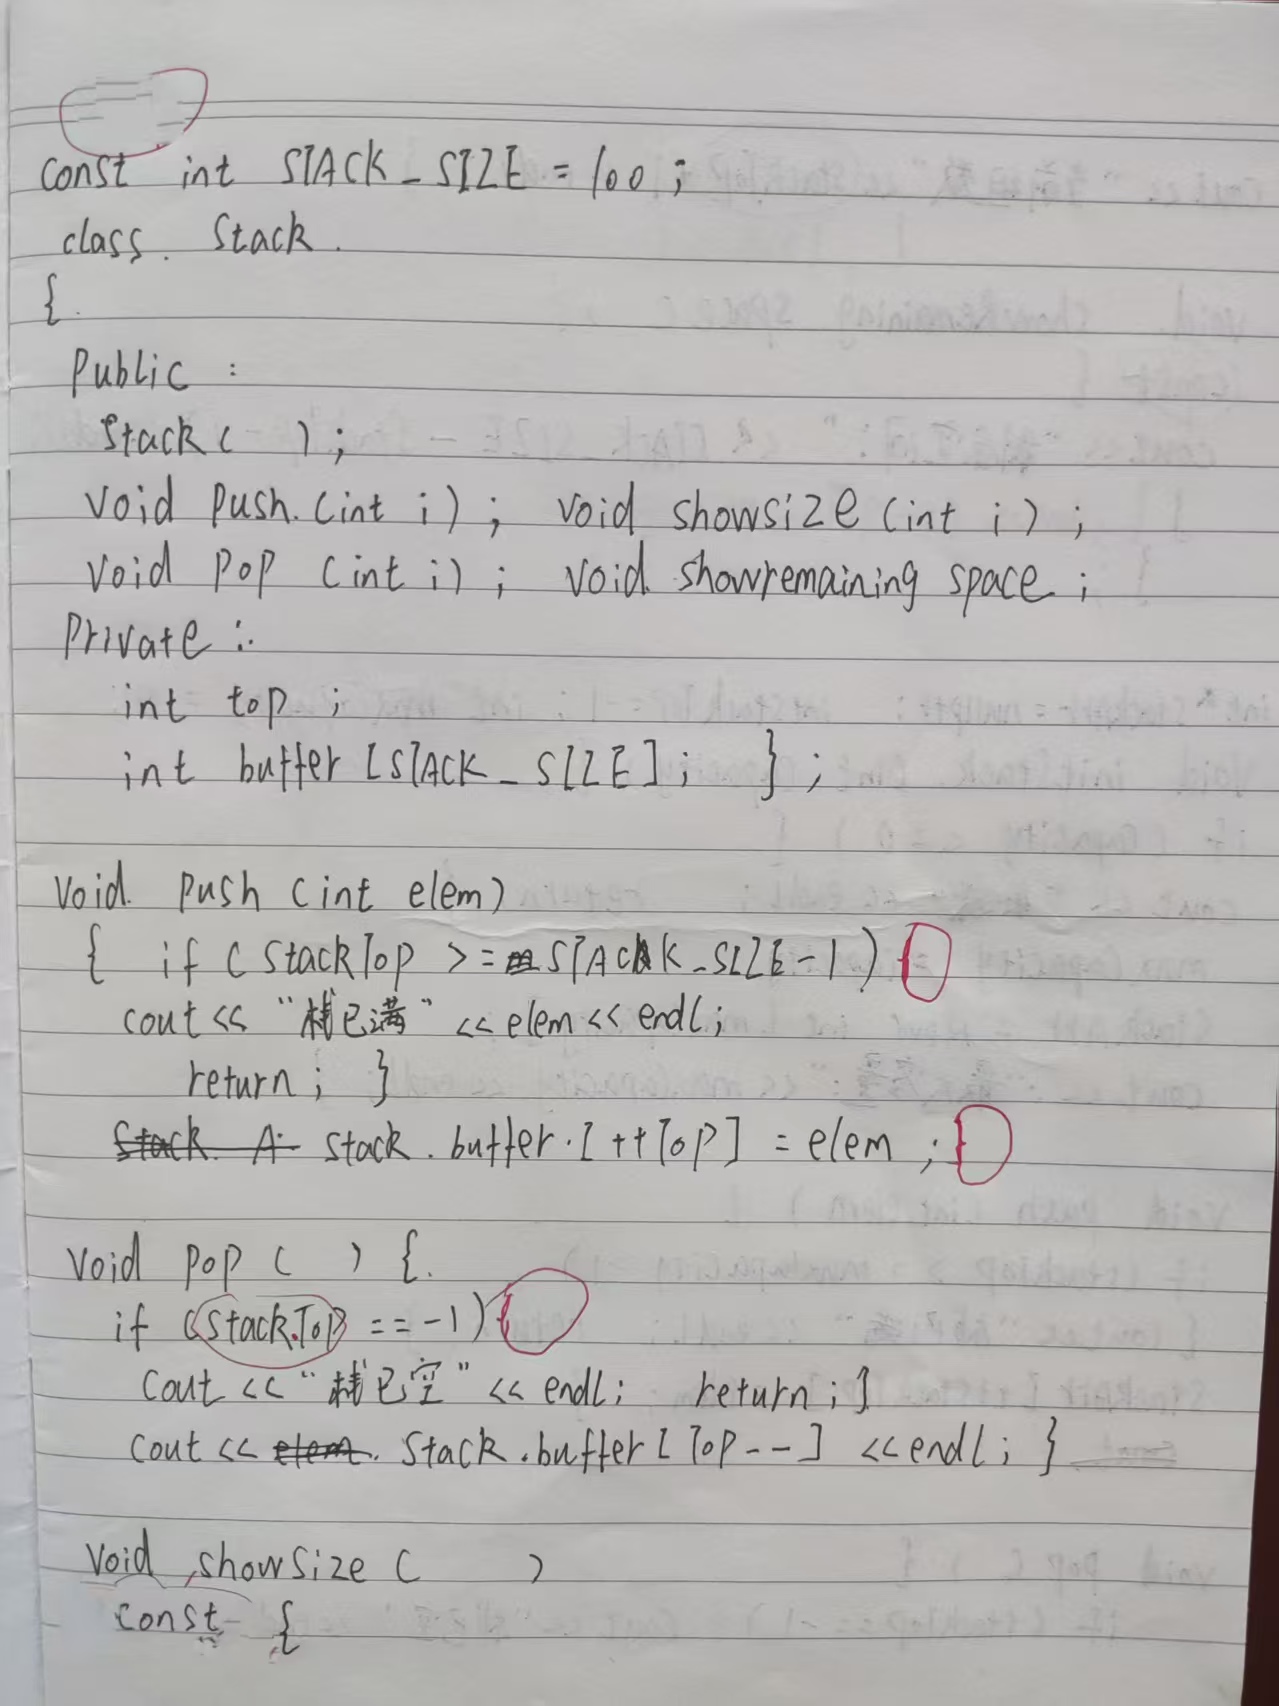 const int STACK_SIZE = 100;
class Stack
{
Public :
Stack( );
Void Push.(int i); Void showsize(int i);
Void Pop (int i); Void showremaining space;
Private :
int top;
int buffer[STACK_SIZE]; };
Void Push (int elem)
{ if (stackTop >= STACK_SIZE-1) {
cout << "栈已满" << elem << endl;
return; }
Stack A. stack.buffer.[++Top] = elem; }
Void pop ( ) {
if (stack.Top == -1) {
Cout << "栈已空" << endl; return; }
Cout << elem. Stack.buffer[Top--] << endl; }
Void showSize ( )
const {